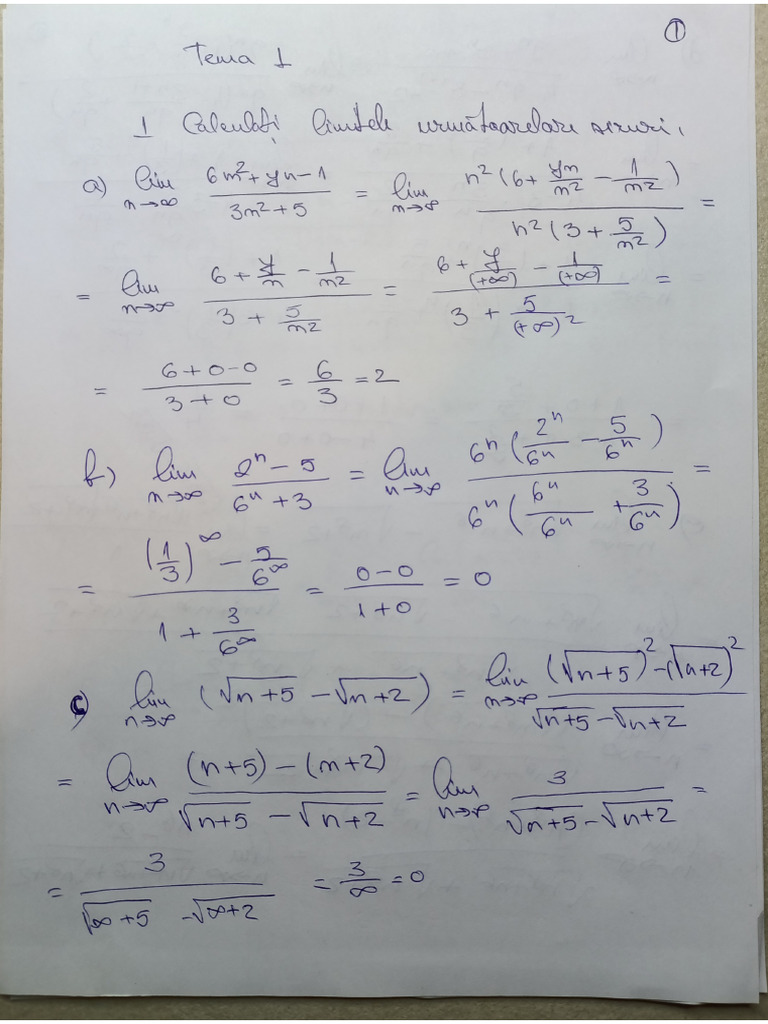 ①
Tema 1
1 Calculați limitele următoarelor siruri.
a) lim n→∞ (6n²+yn-1)/(3n²+5) = lim n→∞ (n²(6+yn/n²-1/n²))/(n²(3+5/n²)) =
= lim n→∞ (6+y/n-1/n²)/(3+5/n²) = (6+y/(+∞)-1/(+∞))/(3+5/(+∞)²) =
= (6+0-0)/(3+0) = 6/3 = 2
b) lim n→∞ (2ⁿ-5)/(6ⁿ+3) = lim n→∞ (6ⁿ(2ⁿ/6ⁿ-5/6ⁿ))/(6ⁿ(6ⁿ/6ⁿ+3/6ⁿ)) =
= ((1/3)^∞-5/6^∞)/(1+3/6^∞) = (0-0)/(1+0) = 0
c) lim n→∞ (√(n+5)-√(n+2)) = lim n→∞ ((√(n+5))²-(√(n+2))²)/(√(n+5)-√(n+2))
= lim n→∞ ((n+5)-(n+2))/(√(n+5)-√(n+2)) = lim n→∞ 3/(√(n+5)-√(n+2)) =
= 3/(√(∞+5)-√(∞+2)) = 3/∞ = 0